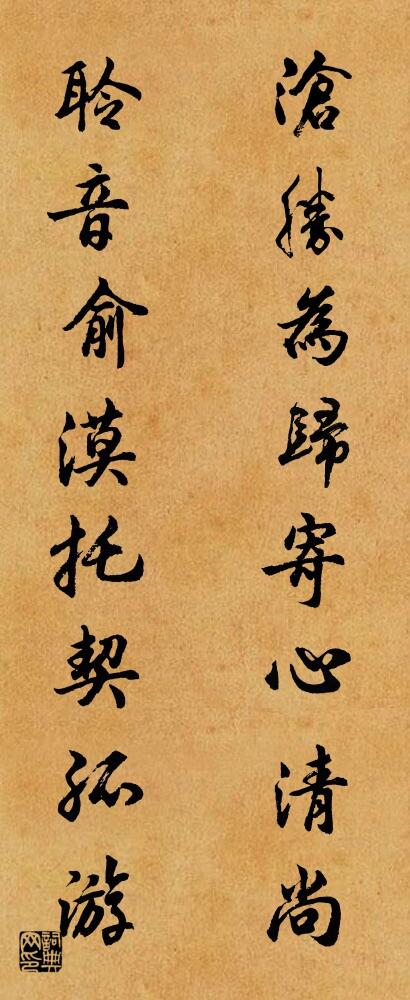 滄勝為歸寄心清尚
聆音俞漠托契孤游
詞典网印